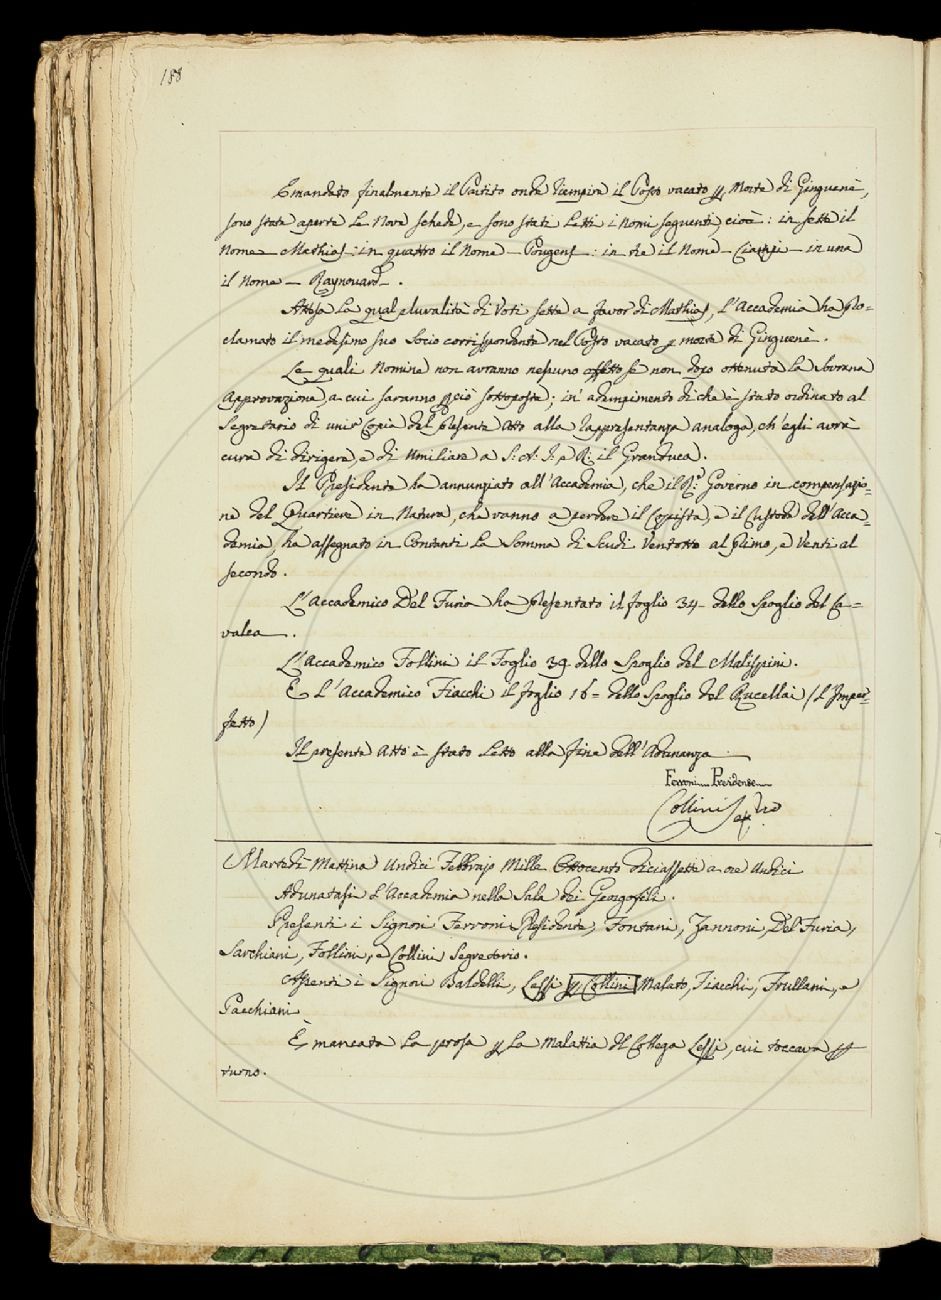 188
E mandato finalmente il Partito onde riempire il Posto vacato p. Morte di Ginguené,
sono state aperte le Nove schede, e sono stati letti i Nomi seguenti, cioè: in sette il
Nome — Mathias: in quattro il Nome — Pougens: in tre il Nome — Ciampi — in una
il Nome — Raynouard — .
Attesa la qual pluralità di Voti sette a favor di Mathias, l'Accademia ha pro-
clamato il medesimo suo Socio corrispondente nel Posto vacato p morte di Ginguenè.
Le quali Nomine non avranno nessuno effetto se non dopo ottenuta la Sovrana
Approvazione, a cui saranno p ciò sottoposte; in adempimento di che è stato ordinato al
Segretario di unir Copia del presente Atto alla rappresentanza analoga, ch'egli avrà
cura di dirigere, e di umiliare a S: A: I: e R: il Granduca.
Il Presidente ha annunziato all'Accademia, che il R.º Governo in compensazio-
ne del Quartiere in Natura, che vanno a perdere il Copista, e il Custode dell'Acca-
demia, ha assegnato in Contanti la Somma di Scudi Ventotto al primo, e Venti al
secondo.
L'Accademico Del Furia ha presentato il foglio 34 — dello Spoglio del Ca=
valca — .
L'Accademico Follini il Foglio 39. dello Spoglio del Malispini.
E l'Accademico Fiacchi il foglio 16 = dello Spoglio del Rucellai (l'Imper-
fetto)
Il presente Atto è stato letto alla fine dell'Adunanza —
Ferroni Presidente
Collini Seg.rio
Martedì Mattina Undici Febbrajo Mille Ottocento Diciassette a ore Undici
Adunatasi l'Accademia nella Sala dei Georgofili.
Presenti i Signori Ferroni Presidente, Fontani, Zannoni, Del Furia,
Sarchiani, Follini, e Collini Segretario.
Assenti i Signori Baldelli, Lessi p, Collini Malato, Fiacchi, Frullani, e
Pacchiani
È mancata la prosa p la Malattia del Collega Lessi, cui toccava p
turno.